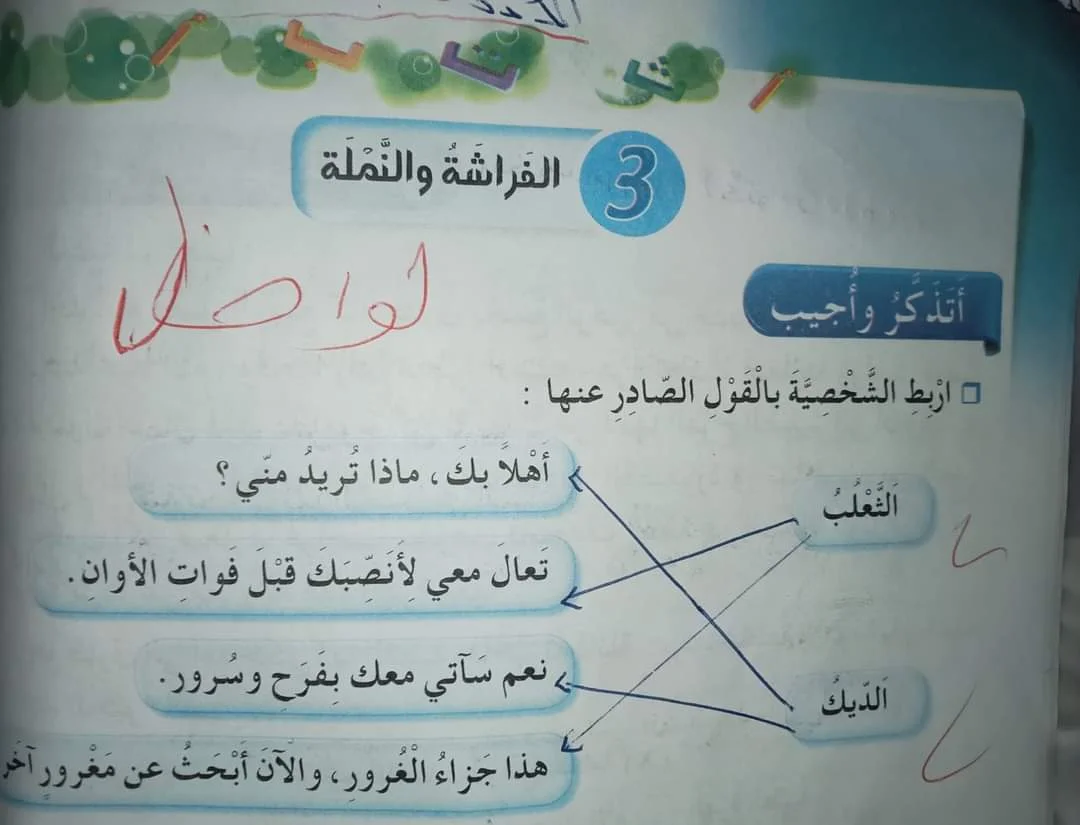 أ ث ت ب أ
3 الفَراشَةُ والنَّمْلَة
لواحظ
أَتَذَكَّرُ وأُجيب
ارْبِطِ الشَّخْصِيَّةَ بالْقَوْلِ الصّادِرِ عنها :
أَهْلاً بكَ، ماذا تُريدُ منّي؟
اَلثَّعْلَبُ
تَعالَ معي لِأُنَصِّبَكَ قبْلَ فَواتِ الأوانِ.
نعم سَآتي معك بِفَرَحِ وسُرور.
اَلدّيكُ
هذا جَزاءُ الْغُرورِ، والآنَ أبْحَثُ عن مَغْرورٍ آخَر